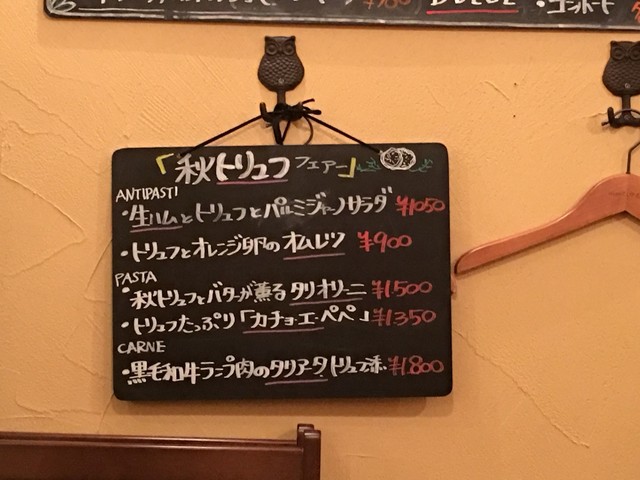 ¥700 DOLCE ・コンポート
「秋トリュフフェアー」
ANTIPASTI
・生ハムとトリュフとパルミジャーノサラダ ¥1050
・トリュフとオレンジ卵のオムレツ ¥900
PASTA
・秋トリュフとバターが薫るタリオリーニ ¥1,500
・トリュフたっぷり「カチョ・エ・ペペ」 ¥1,350
CARNE
・黒毛和牛ランプ肉のタリアータトリュフ添 ¥1,800